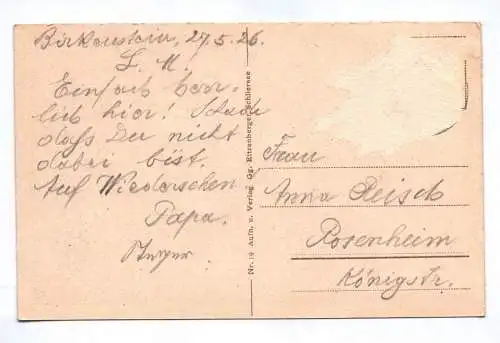 Birkenstein, 27.5.26.
L. M!
Einfach herr-
lich hier! Schade
daß Du nicht
dabei bist.
Auf Wiedersehen
Papa.
Nr. 19 Aufn. u. Verlag Gg. Ettenberger, Schliersee
Frau
Anna Reisch
Rosenheim
Königstr.